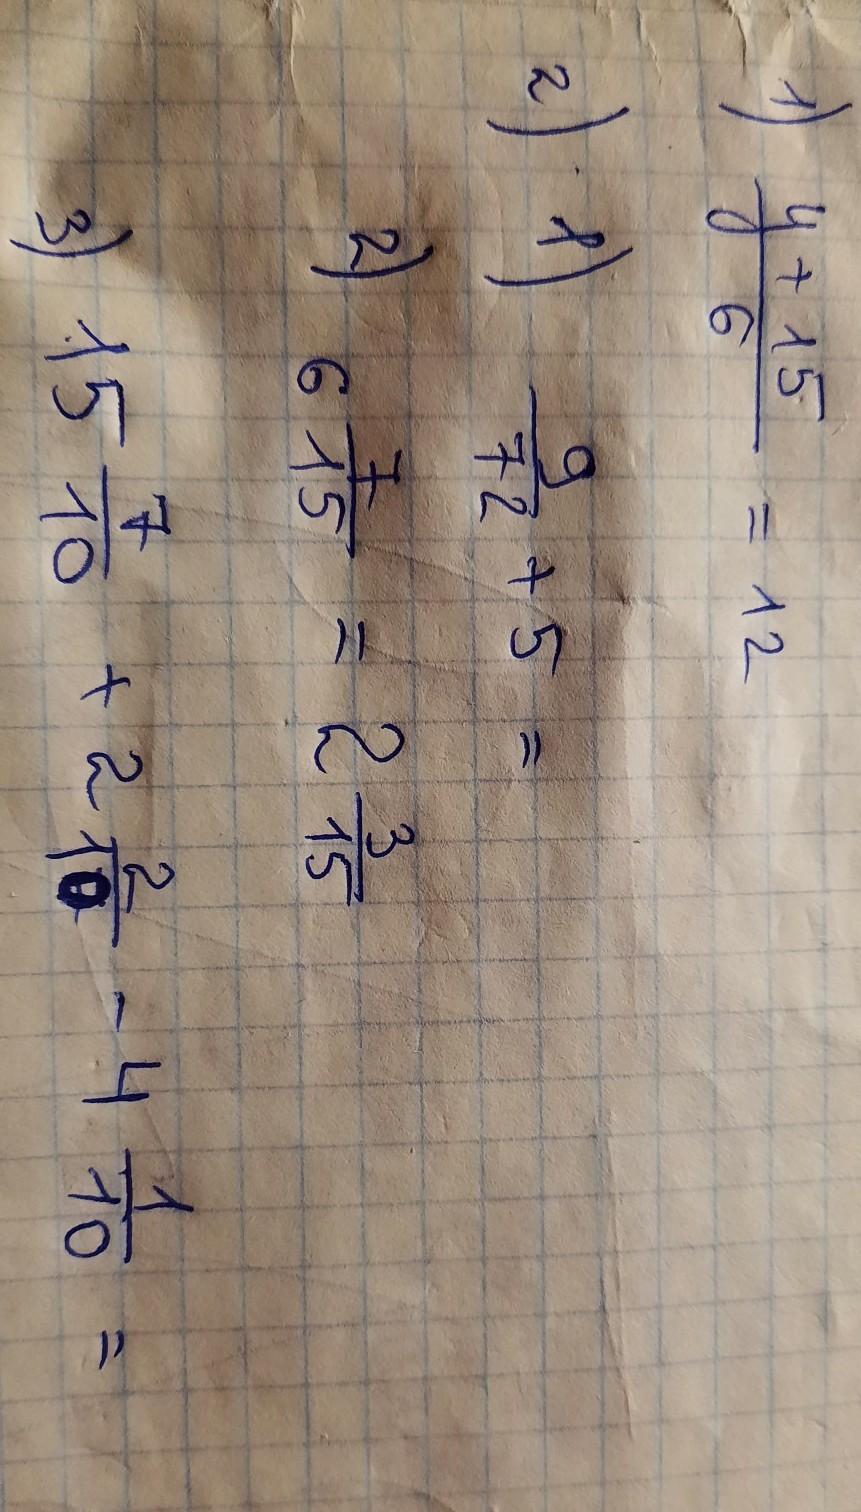 1) (y + 15)/6 = 12
2) 1) 9/72 + 5 =
2) 6 7/15 = 2 3/15
3) 15 7/10 + 2 2/10 - 4 1/10 =